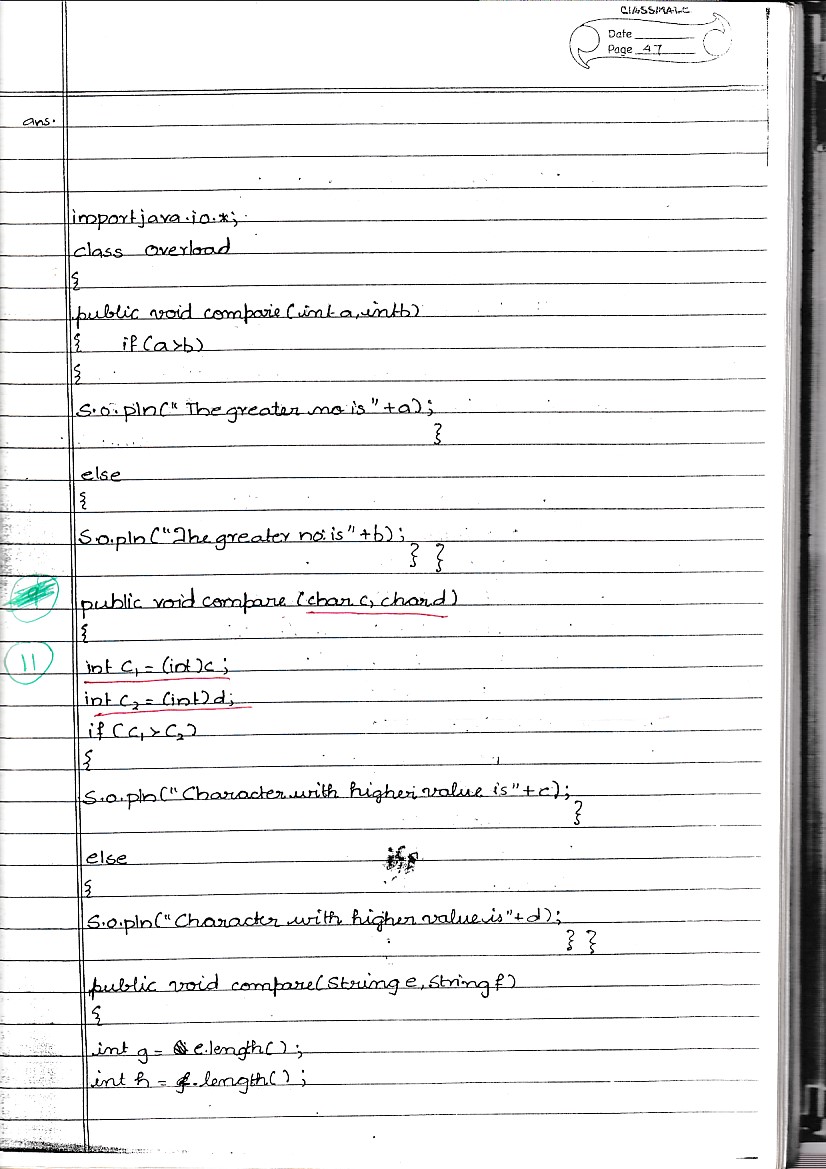 CLASSMATE
Date
Page 47
ans.
import java.io.*;
class overload
{
public void compare (int a, int b)
{ if (a>b)
{
S.o.pln(" The greater no is" +a);
}
else
{
S.o.pln ("The greater no. is" +b);
} }
public void compare (char c, char d)
{
11
int c₁ = (int)c;
int c₂ = (int)d;
if (c₁ > c₂)
{
S.o.pln(" Character with higher value is"+c);
}
else
{
S.o.pln("Character with higher value is"+d);
} }
public void compare(String e, String f)
{
int g = e.length();
int h = f.length();